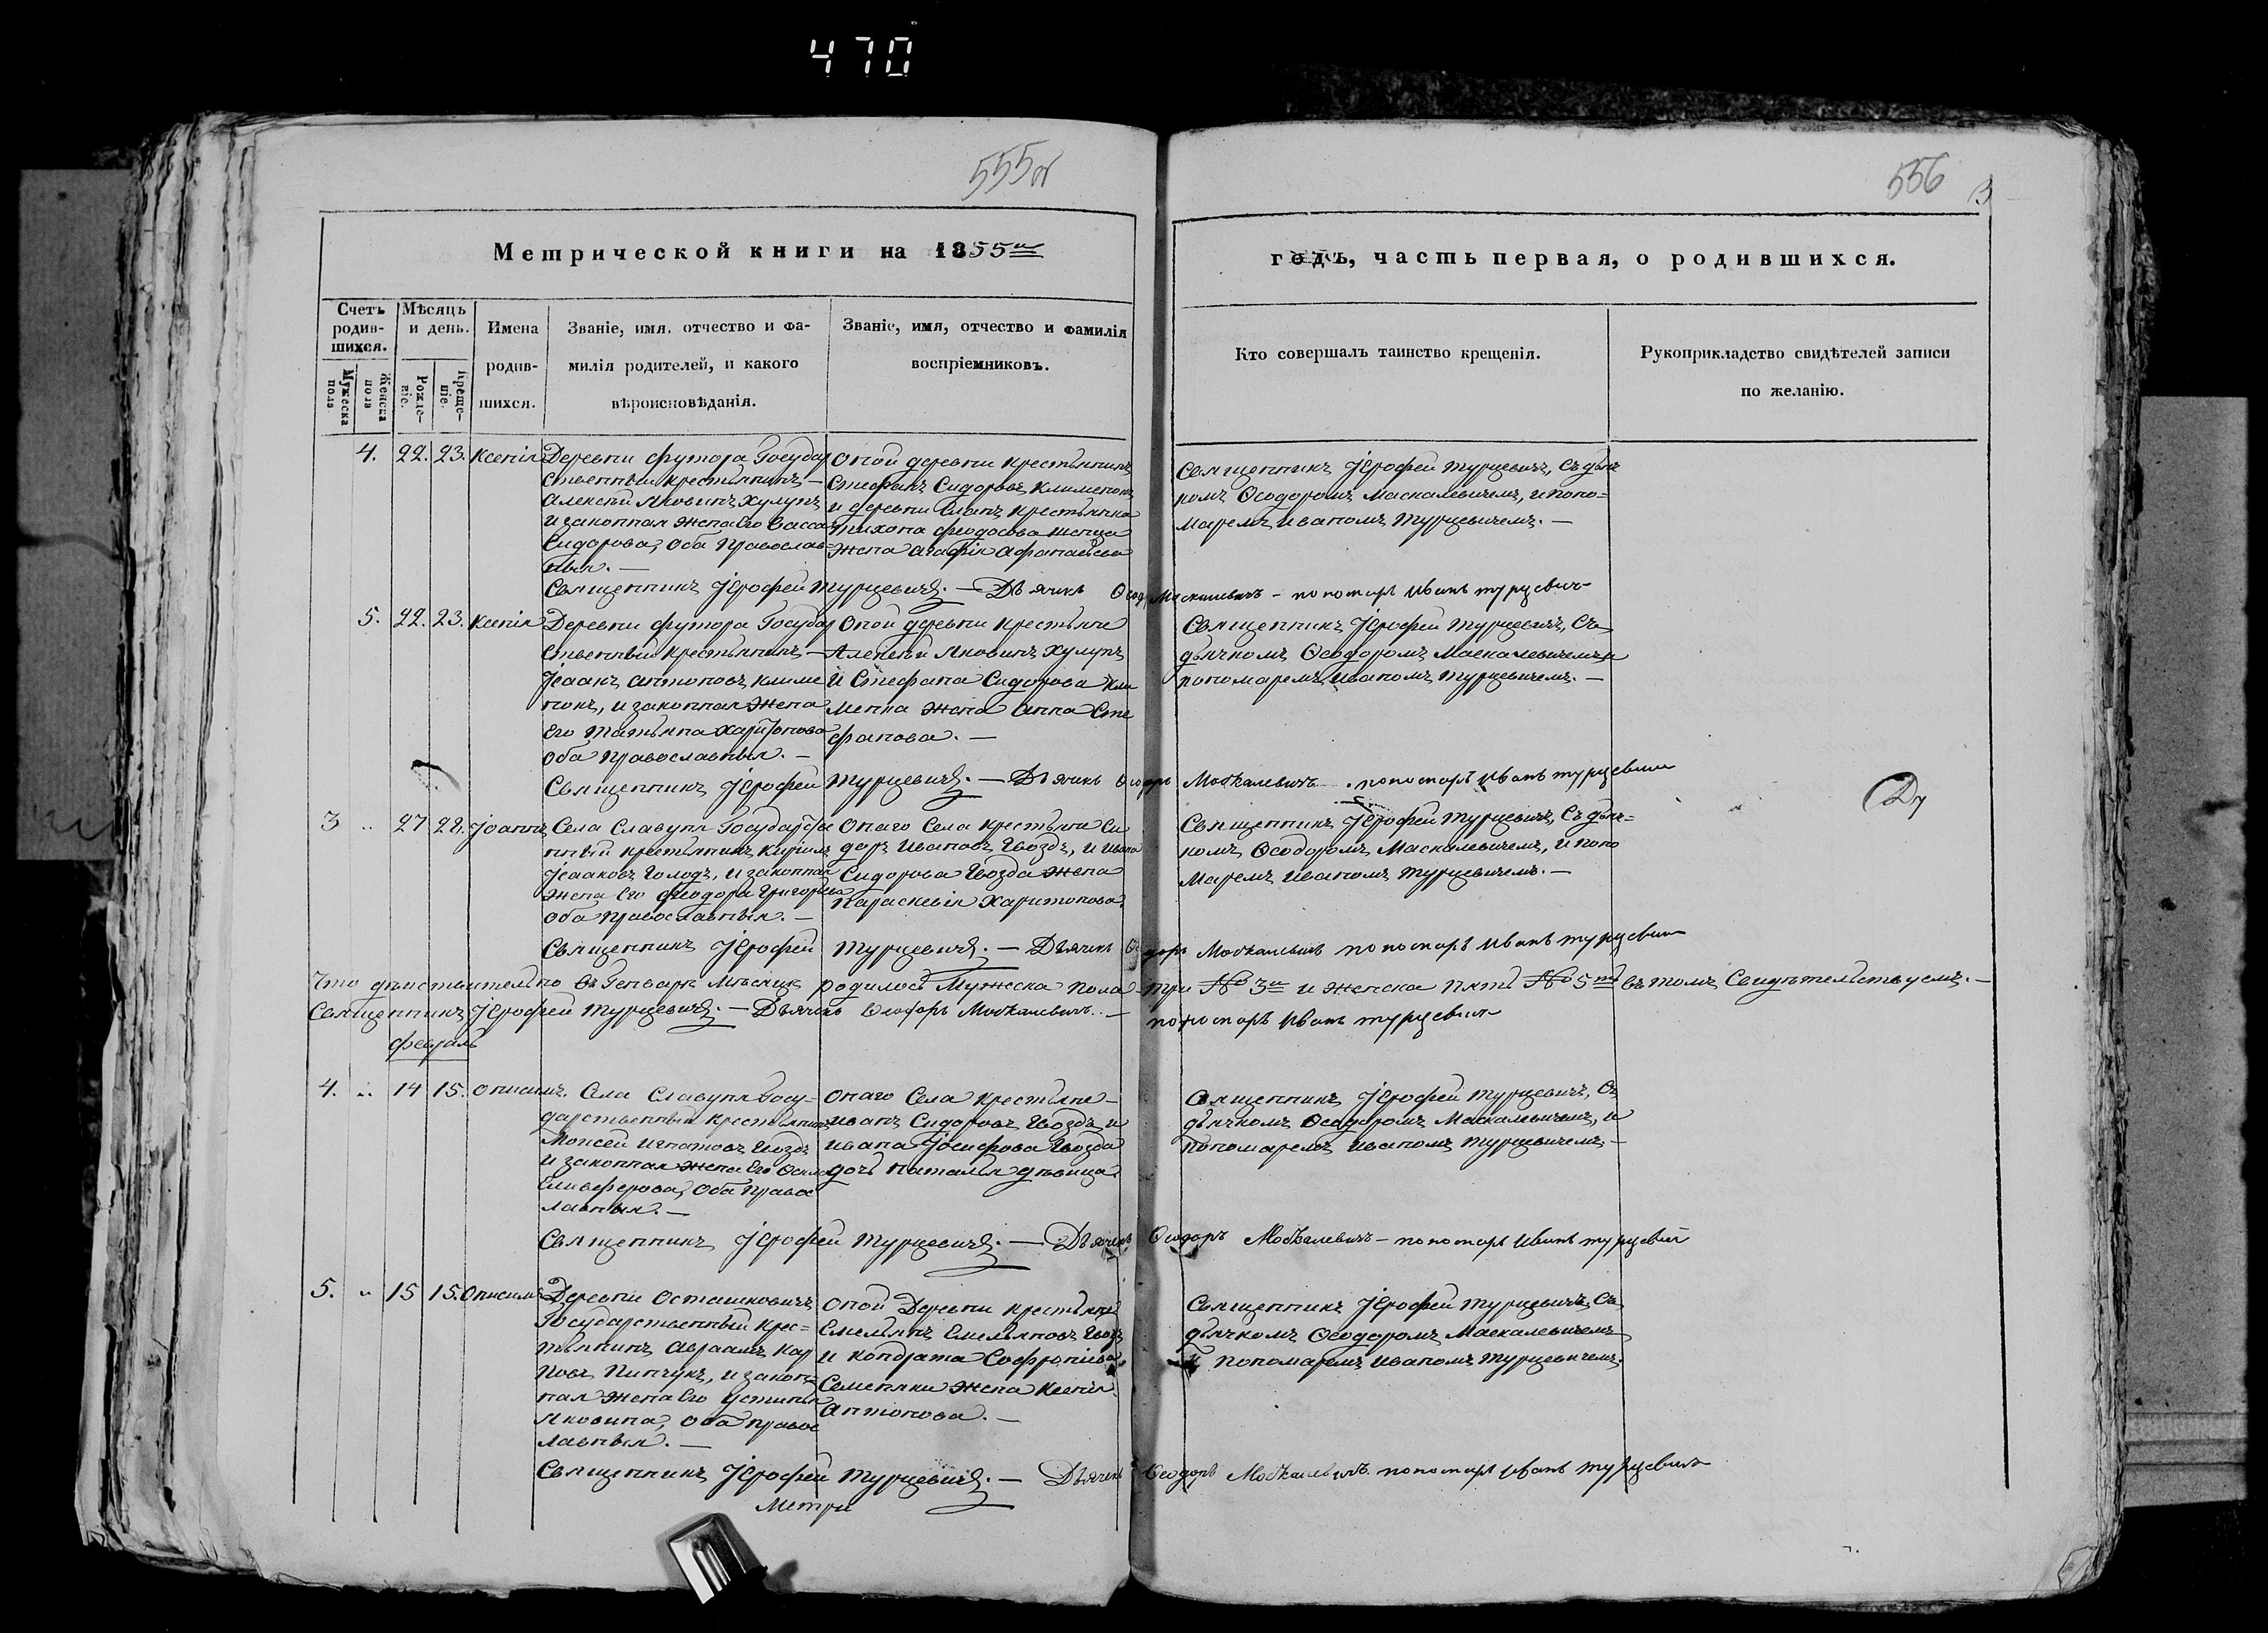 470
555об
556
Метрической книги на 1855й
годъ, часть первая, о родившихся.
Счетъ родив-шихся.
Мѣсяцъ и день.
Мужеска пола
Женска пола
Рожде-ніе.
Креще-ніе.
Имена
родив-
шихся.
Званіе, имя, отчество и фа-
милія родителей, и какого
вѣроисповѣданія.
Званіе, имя, отчество и фамилія
воспріемниковъ.
Кто совершалъ таинство крещенія.
Рукоприкладство свидѣтелей записи
по желанію.
4. 22. 23. Ксенія
Деревни Футора Государ
ственный крестьянинъ
Алексѣй Яковинъ Хулупъ
и законная жена его Васса
Сидорова, оба православ-
ныя.
Оной деревни крестьянинъ
Стефанъ Сидоровъ Клименокъ
и деревни крестьянина
Тихона Феодосова
жена Агафія Афанасіева
Священникъ Іерофей Турцевичъ, съ дьяч
комъ Ѳеодоромъ Маскалевичемъ, и поно=
маремъ Иваномъ Турцевичемъ.
Священникъ Іерофей Турцевичъ. Дьячекъ Ѳеод Маскалевичъ - пономарь Иванъ Турцевичъ
5. 22. 23. Ксенія
Деревни Футора Государ
ственный крестьянинъ
Ісаакъ Антоновъ Климе
нокъ, и законная жена
его Татьяна Харитонова
оба православныя.
Оной деревни крестьяне
Алексѣй Яковинъ Хулупъ
и Стефана Сидорова Кли
менка жена Анна Сте
фанова.
Священникъ Іерофей Турцевичъ, съ
дьячкомъ Ѳеодоромъ Маскалевичемъ и
пономаремъ Иваномъ Турцевичемъ.
Священникъ Іерофей Турцевичъ. Дьячекъ Ѳеодоръ Москалевичъ. пономарь Иванъ Турцевичъ
3 .. 27 28. Іоаннъ
Села Славупя Государстве
нный крестьянинъ Кирилъ
Ісааковъ Голодъ, и законная
жена его Феодора Григорьева
оба православныя.
Онаго села крестьяне Си
доръ Ивановъ Гвоздъ, и Ивана
Сидорова Гвозда жена
Параскевія Харитонова.
Священникъ Іерофей Турцевичъ, съ дьяч=
комъ Ѳеодоромъ Маскалевичемъ, и поно
маремъ Иваномъ Турцевичемъ.
Священникъ Іерофей Турцевичъ. Дьячекъ Ѳеодоръ Москалевичъ пономарь Иванъ Турцевичъ
Что дѣиствительно въ Генварѣ Мѣсяцѣ родилось Мужеска пола три № 3й и женска пять № 5ть въ томъ Свидѣтельствуемъ.
Священникъ Іерофей Турцевичъ. Дьячекъ Ѳеодоръ Москалевичъ. пономарь Иванъ Турцевичъ
февраль
4. .. 14 15. Онисимъ.
Села Славупя Госу-
дарственный крестьянинъ
Моисей Игнатовъ Гвоздъ
и законная жена его
Елиѳерова, оба правос
лавныя.
Онаго села крестьяне
Иванъ Сидоровъ Гвоздъ и
Ивана Іосифова Гвозда
дочь Наталья дѣвица.
Священникъ Іерофей Турцевичъ, съ
дьячкомъ Ѳеодоромъ Маскалевичемъ, и
пономаремъ Иваномъ Турцевичемъ.
Священникъ Іерофей Турцевичъ. Дьячекъ Ѳеодоръ Москалевичъ - пономарь Иванъ Турцевичъ
5. .. 15 15. Онисимъ
Деревни Осташковичъ
Государственный крес=
тьянинъ Авраамъ Кар
повъ Пинчукъ, и закон-
ная жена его Устинья
Яковина, оба правос
лавныя.
Оной Деревни крестьяне
Емельянъ Емельяновъ Гвоздъ
и Кондрата Софроніева
Семеняки жена Ксенія
Антонова.
Священникъ Іерофей Турцевичъ, съ
дьячкомъ Ѳеодоромъ Маскалевичемъ
и пономаремъ Иваномъ Турцевичемъ.
Священникъ Іерофей Турцевичъ. Дьячекъ Ѳеодоръ Москалевичъ. пономарь Иванъ Турцевичъ
Метри